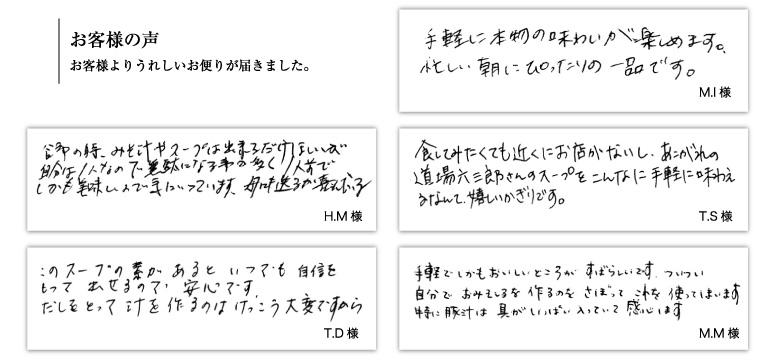 お客様の声
お客様よりうれしいお便りが届きました。
手軽に本物の味わいが楽しめます。
忙しい朝にぴったりの一品です。
M.I 様
の時、みそ汁やスープは出来るだけほしいが
自分は1人なので無駄になる事が多く1人前で
しかも美味しいので気にいっています。
H.M 様
食してみたくても近くにお店がないし、あこがれの
道場六三郎さんのスープをこんなに手軽に味わえ
るなんて、嬉しいかぎりです。
T.S 様
このスープの素があるといつでも自信を
もって出せるので安心です。
だしをとって汁を作るのはけっこう大変ですから
T.D 様
手軽でしかもおいしいところがすばらしいです。ついつい
自分でおみそしるを作るのをさぼってこれを使ってしまいます
特に豚汁は具がいっぱい入っていて感心します
M.M 様